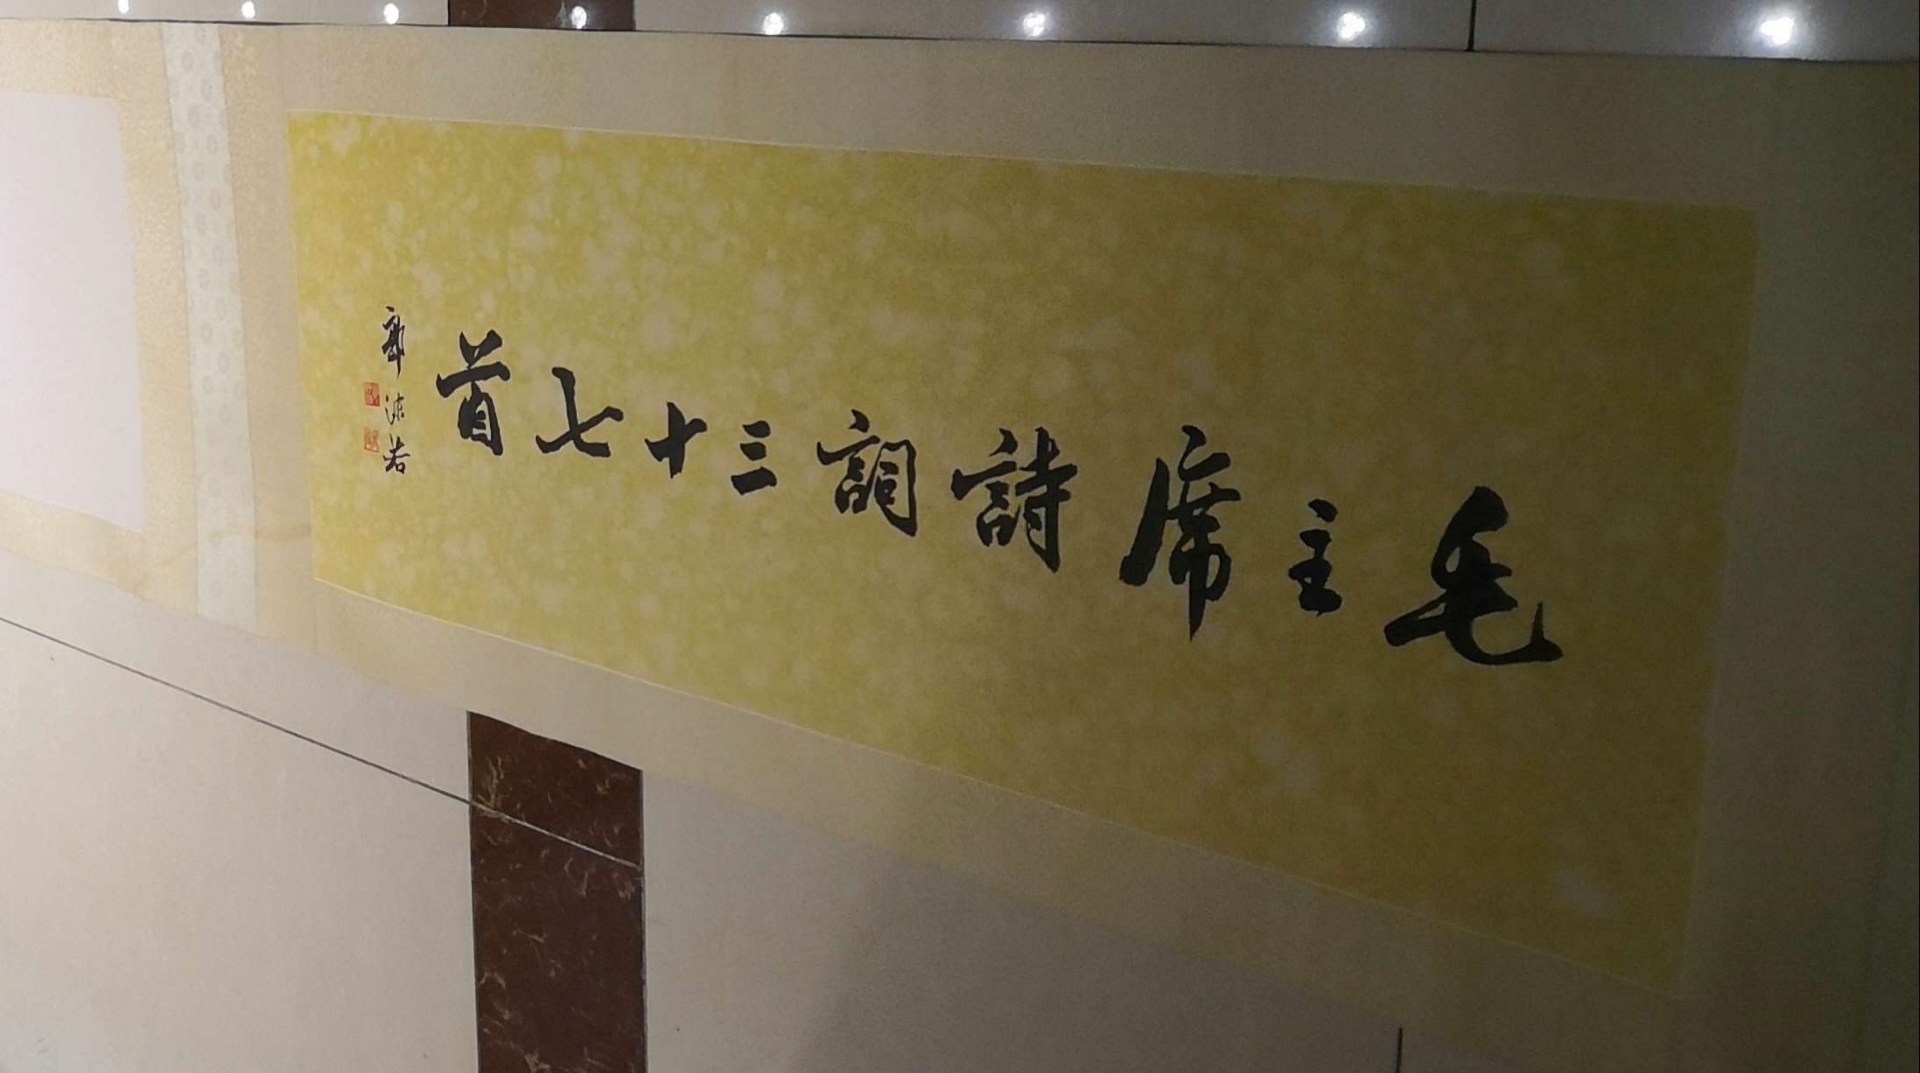 毛主席詩詞三十七首
郭沫若